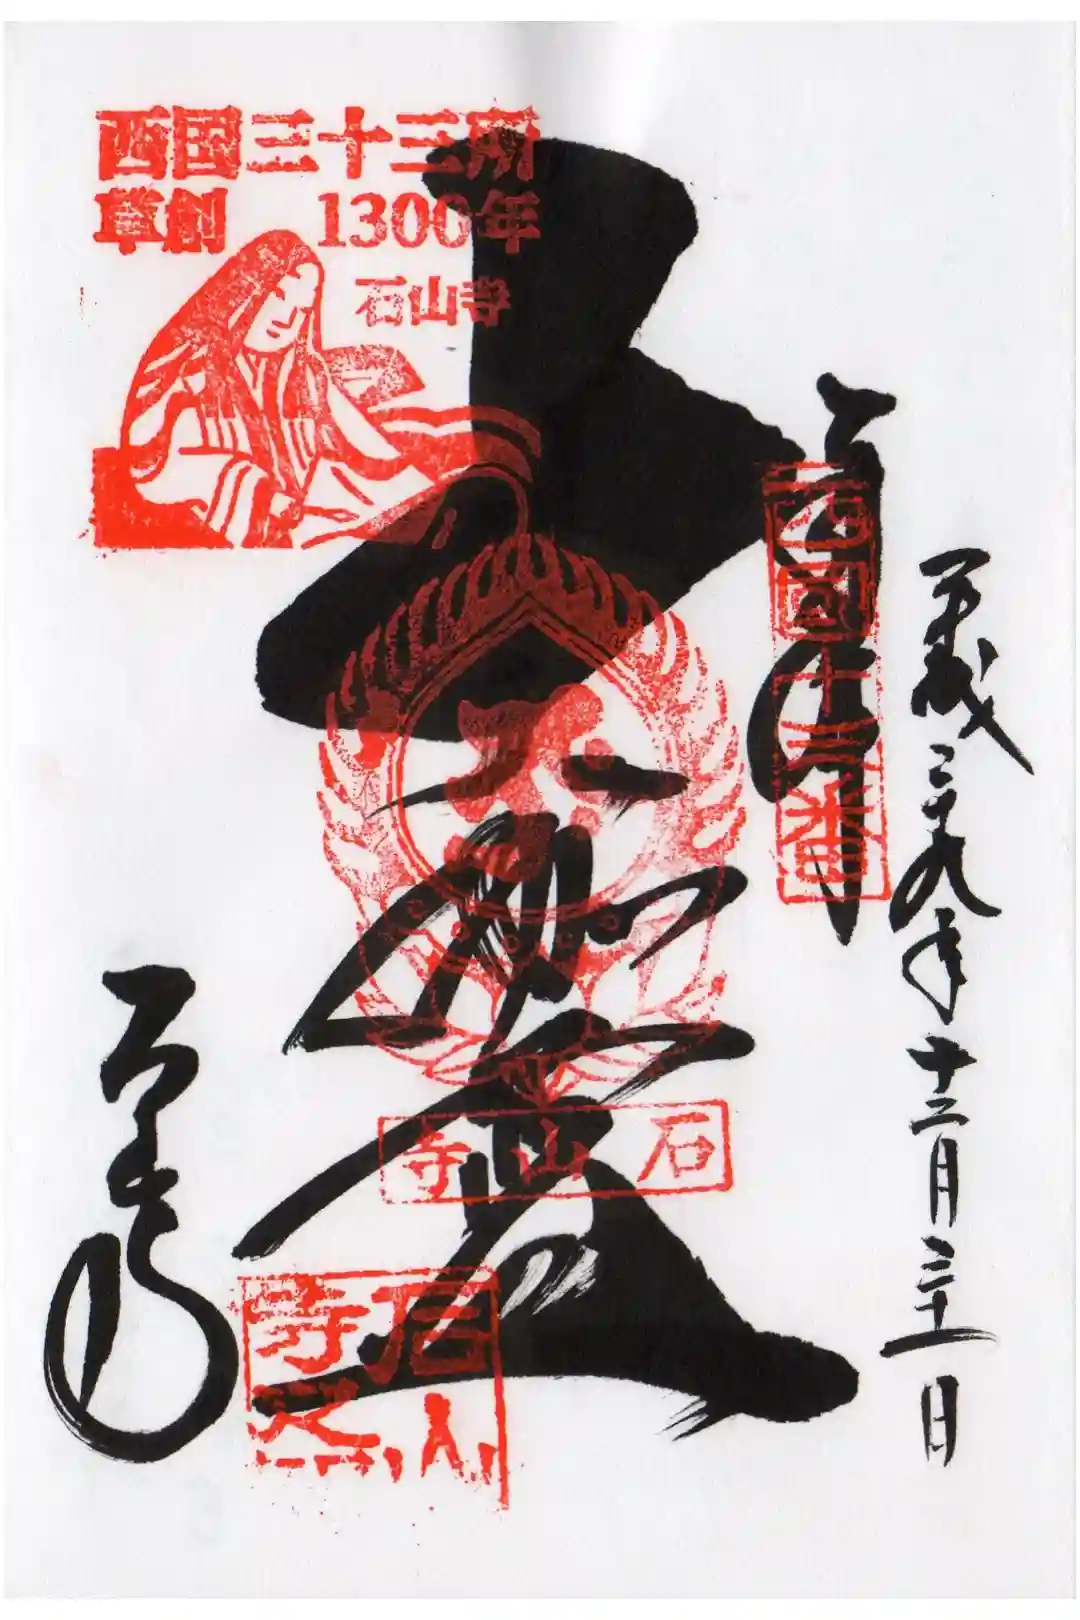 西国三十三所
草創 1300年
石山寺
奉拝
西國十三番
平成二十九年十二月三十一日
大伽藍
石山寺
石山寺